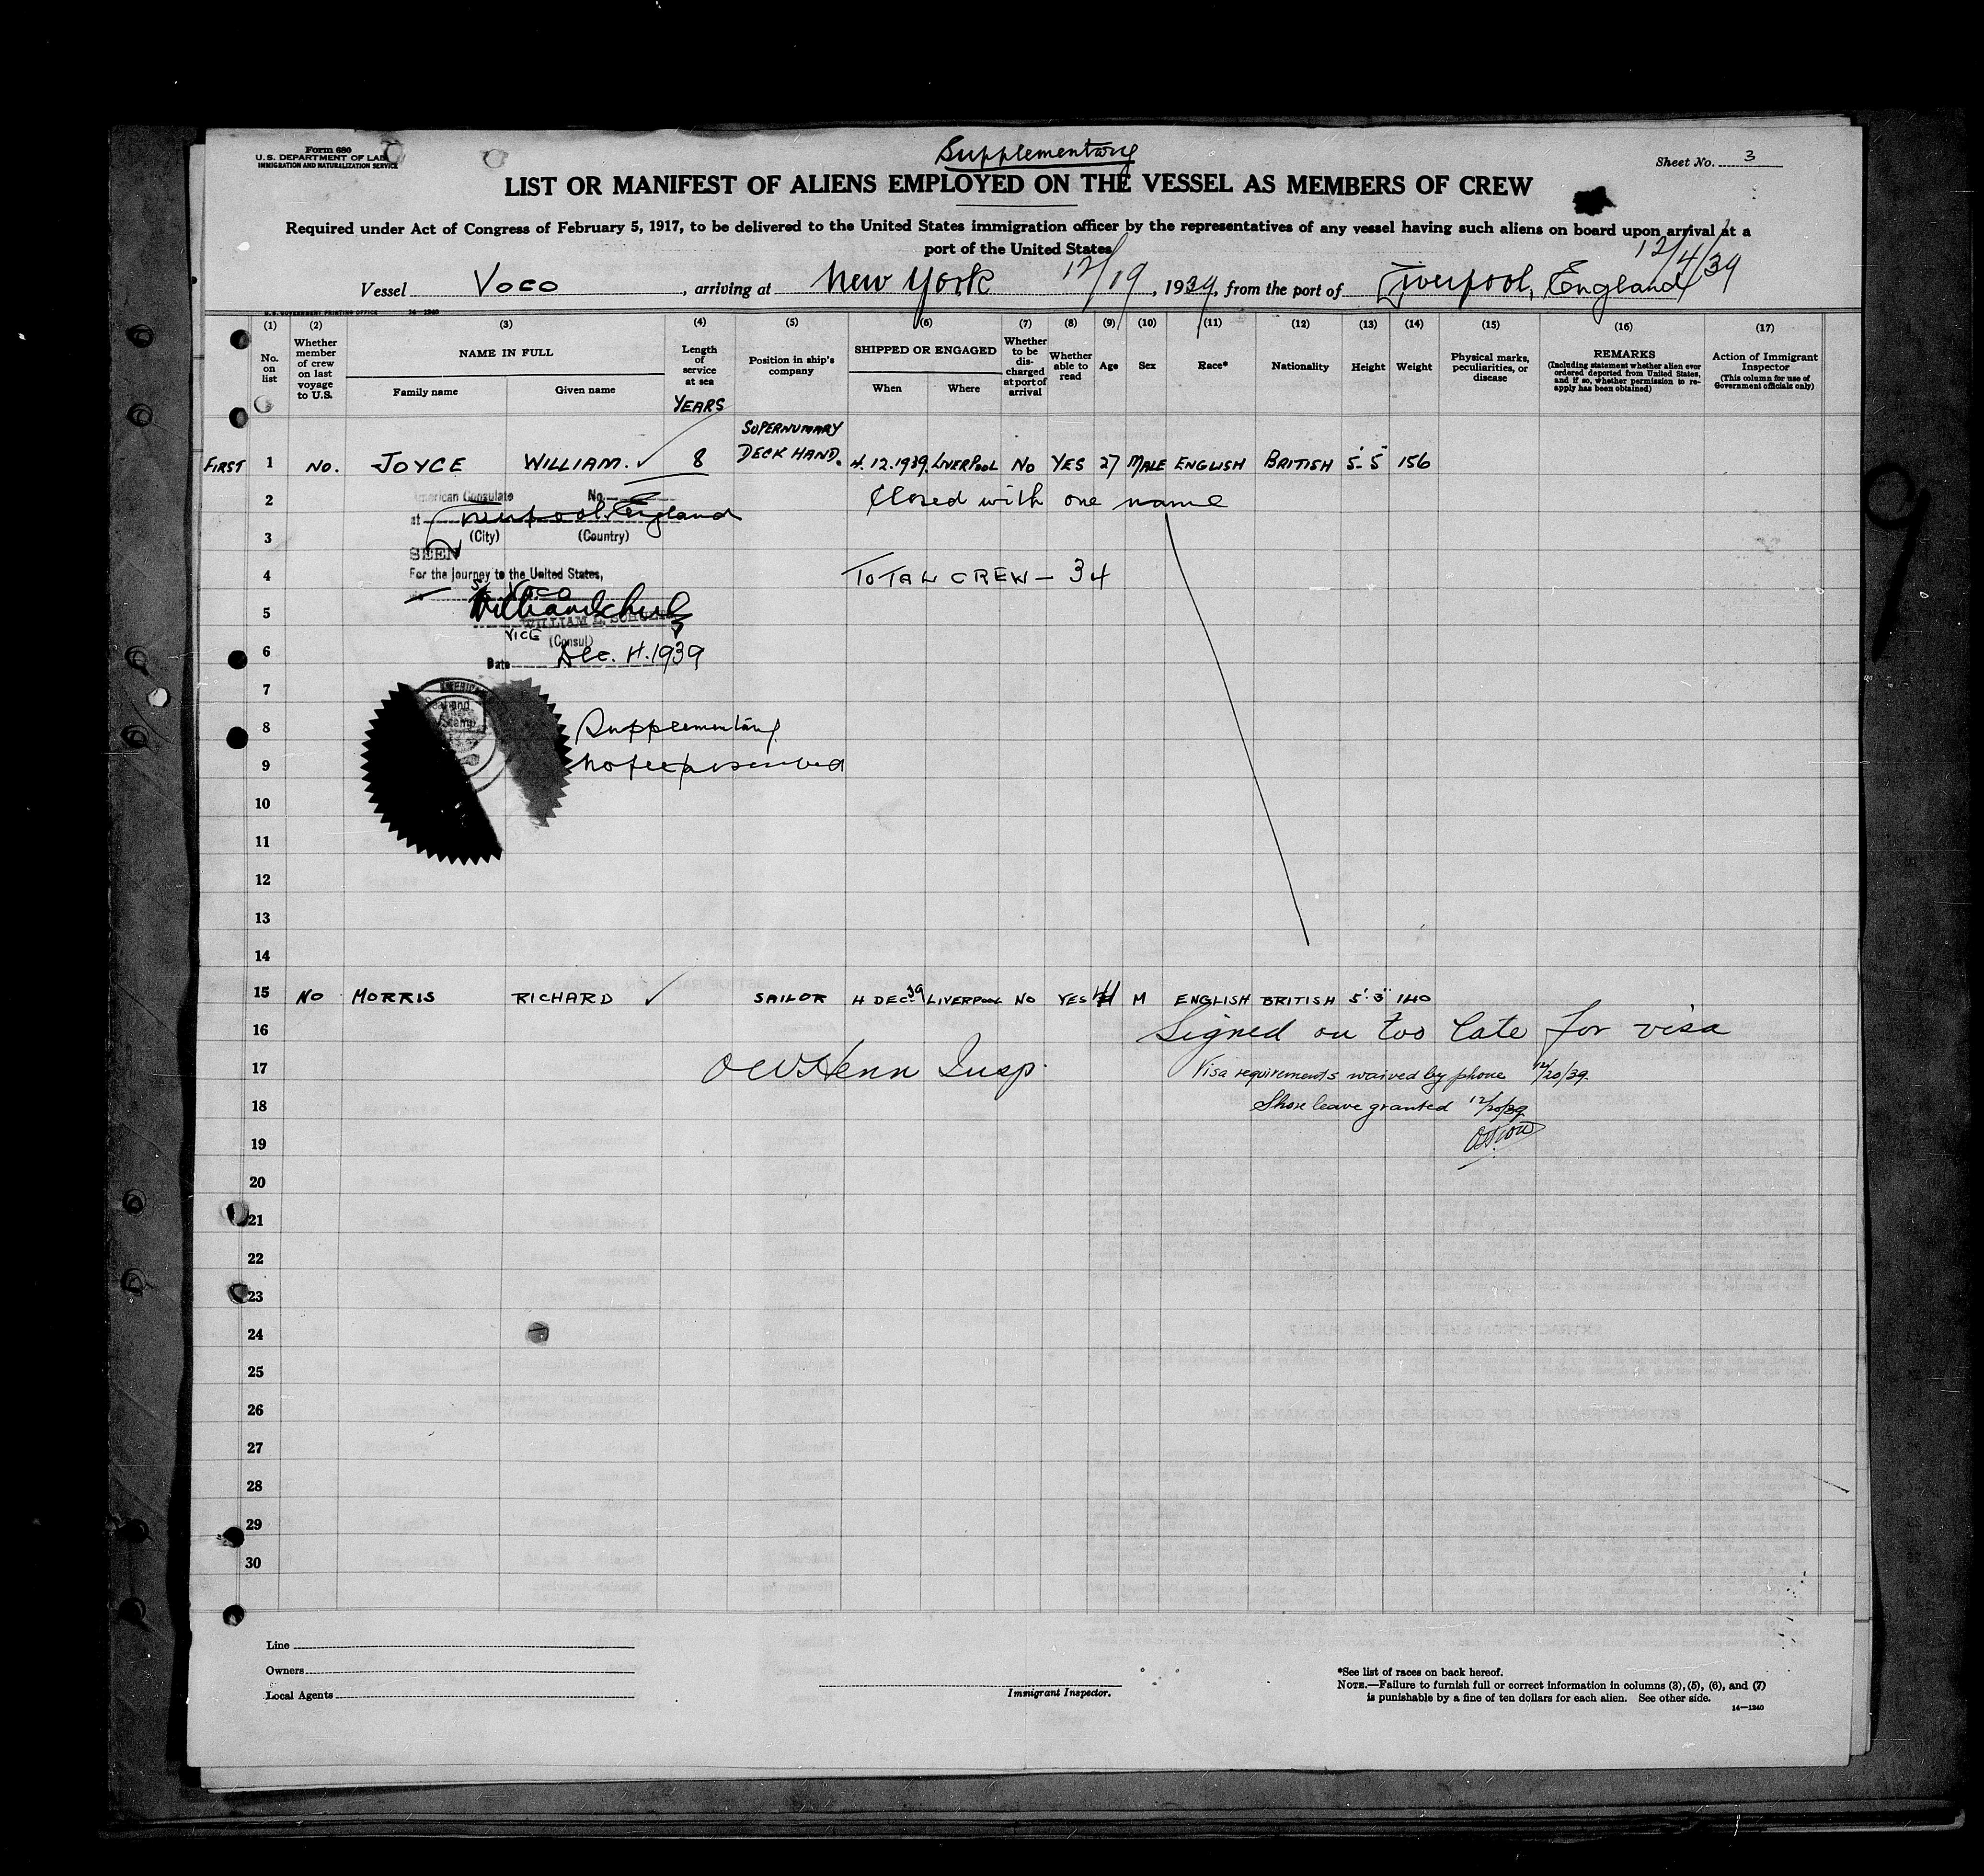 Form 680
U.S. DEPARTMENT OF LAB
IMMIGRATION AND NATURALIZATION SERVICE
Supplementary
Sheet No. 3
LIST OR MANIFEST OF ALIENS EMPLOYED ON THE VESSEL AS MEMBERS OF CREW
Required under Act of Congress of February 5, 1917, to be delivered to the United States immigration officer by the representatives of any vessel having such aliens on board upon arrival at a
port of the United States
12/4/39
Vessel Voco, arriving at New York 12/19, 1939, from the port of Liverpool, England
U.S. GOVERNMENT PRINTING OFFICE 14—1240
(1) (2) (3) (4) (5) (6) (7) (8) (9) (10) (11) (12) (13) (14) (15) (16) (17)
No. on list
Whether member of crew on last voyage to U.S.
NAME IN FULL
Family name
Given name
Length of service at sea
YEARS
Position in ship's company
SHIPPED OR ENGAGED
When
Where
Whether to be discharged at port of arrival
Whether able to read
Age
Sex
Race*
Nationality
Height
Weight
Physical marks, peculiarities, or disease
REMARKS
(Including statement whether alien ever ordered deported from United States, and if so, whether permission to reapply has been obtained)
Action of Immigrant Inspector
(This column for use of Government officials only)
SUPERNUMARY
FIRST 1 NO. JOYCE WILLIAM. ✓ 8 DECK HAND. 4.12.1939. LIVERPOOL NO YES 27 MALE ENGLISH BRITISH 5'-5" 156
American Consulate No.
2 Closed with one name
at Liverpool, England
3 (City) (Country)
SEEN
4 For the journey to the United States, TOTAL CREW — 34
Voco
5 WILLIAM L. SCHULZ
VICE (Consul)
6 Date Dec. 4. 1939
7
Seal and
Stamp
8 Supplementary
9 No fee prescribed
10
11
12
13
14
15 NO MORRIS RICHARD ✓ SAILOR 4 DEC. 39 LIVERPOOL NO YES 41 M ENGLISH BRITISH 5'.3" 140
16 Signed on too late for visa
17 Insp. Visa requirements waived by phone 12/20/39.
18 Shore leave granted 12/20/39
19
20
21
22
23
24
25
26
27
28
29
30
9
Line
Owners
Local Agents
Immigrant Inspector.
*See list of races on back hereof.
NOTE.—Failure to furnish full or correct information in columns (3), (5), (6), and (7)
is punishable by a fine of ten dollars for each alien. See other side.
14—1240